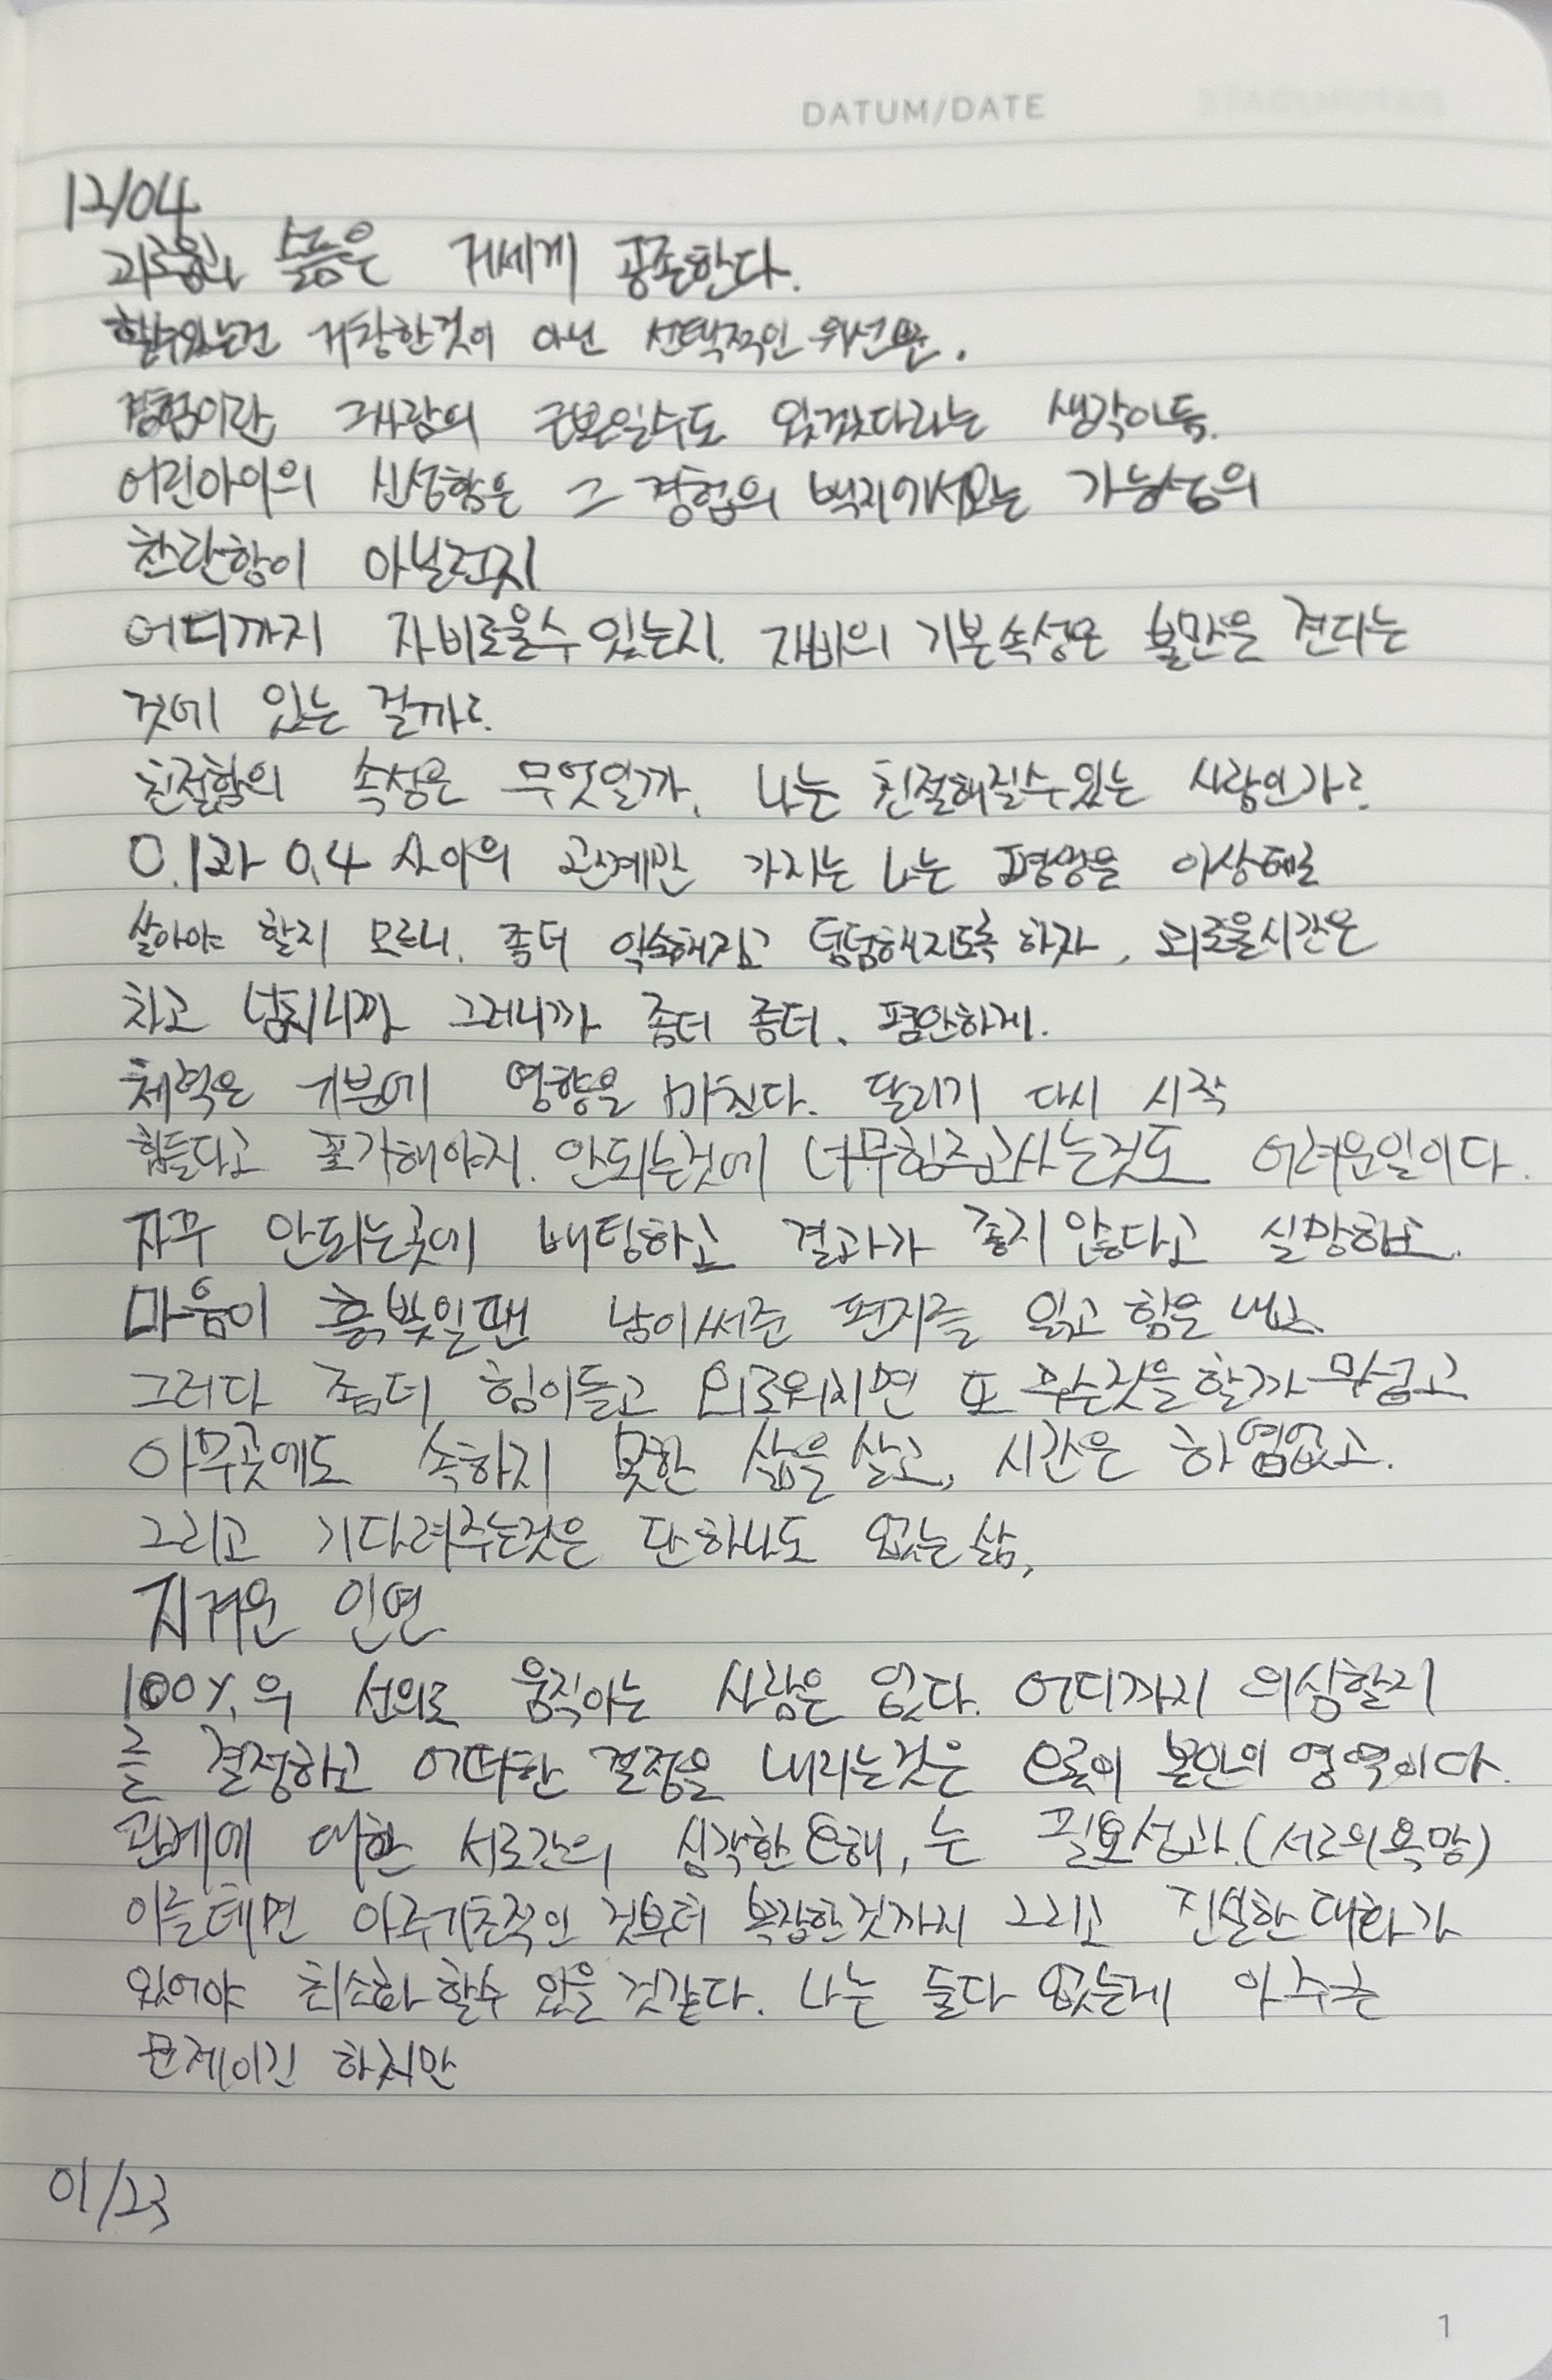 DATUM/DATE
12/04
괴로움과 슬픔은 거세게 공존한다.
할수있는건 거창한것이 아닌 선택적인 위선뿐.
경험이란 그사람의 근본일수도 있겠다라는 생각이듦.
어린아이의 신성함은 그 경험의 백지에서오는 가능성의
찬란함이 아닐런지
어디까지 자비로울수 있는지. 자비의 기본속성은 불만을 견디는
것에 있는 걸까?
친절함의 속성은 무엇일까. 나는 친절해질수있는 사람인가?
0.1과 0.4 사이의 관계만 가지는 나는 평생을 이상태로
살아야 할지 모르니. 좀더 익숙해지고 덤덤해지도록 하자, 외로울시간은
차고 넘치니까 그러니까 좀더 좀더. 평안하게.
체력은 기분에 영향을 미친다. 달리기 다시 시작
힘들다고 포기해야지. 안되는것에 너무힘주고사는것도 어려운일이다.
자꾸 안되는곳에 배팅하고 결과가 좋지 않다고 실망하고.
마음이 흙빛일땐 남이써준 편지를 읽고 힘을 내고
그러다 좀더 힘이들고 외로워지면 또 무슨것을 할까 무섭고
아무곳에도 속하지 못한 삶을 살고, 시간은 하염없고.
그리고 기다려주는것은 단하나도 없는 삶,
지겨운 인연
100%의 선의로 움직이는 사람은 없다. 어디까지 의심할지
를 결정하고 어떠한 결정을 내리는것은 오롯이 본인의 영역이다.
관계에 대한 서로간의 심각한 오해, 는 필요성과 (서로의 욕망)
이를테면 아주기초적인 것부터 복잡한것까지 그리고 진실한 대화가
있어야 최소화 할수 있을 것같다. 나는 둘다 없는게 아주큰
문제이긴 하지만
01/23
1